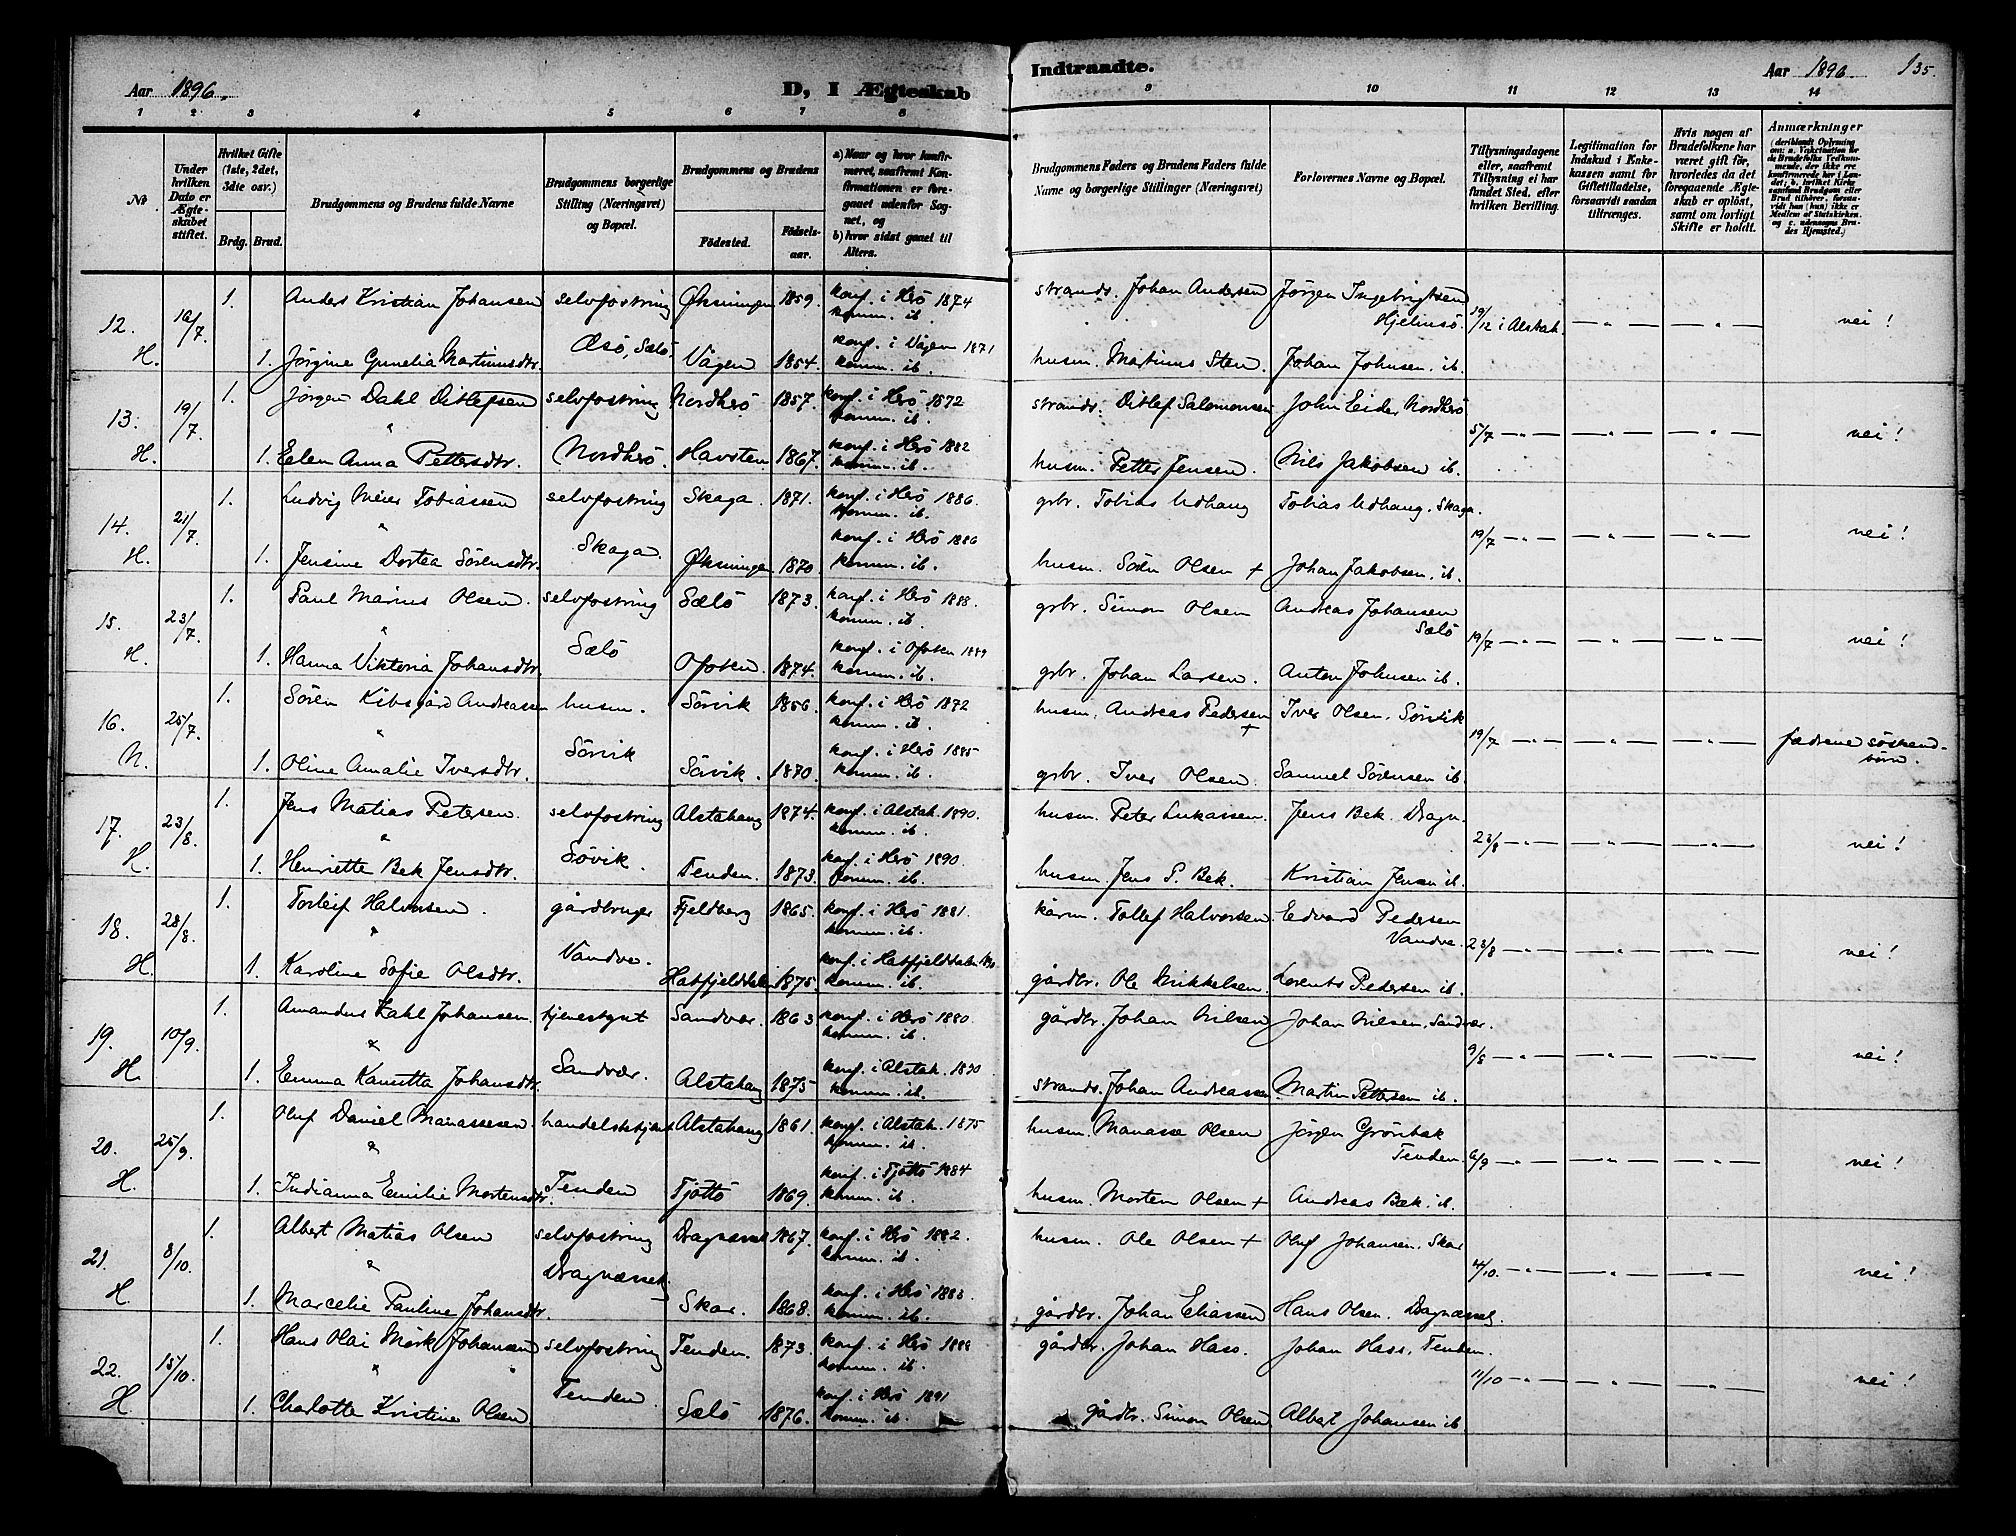 Aar 1896.
D, I Ægteskab
Indtraadte.
Aar 1896.
135.
1 2 3 4 5 6 7 8 9 10 11 12 13 14
№
Under hvilken Dato er Ægteskabet stiftet.
Hvilket Gifte (1ste, 2det, 3die osv.)
Brdg. Brud.
Brudgommens og Brudens fulde Navne
Brudgommens borgerlige Stilling (Næringsvei) og Bopæl.
Brudgommens og Brudens
Födested.
Födselsaar.
a) Naar og hvor konfirmeret, saafremt Konfirmationen er foregaaet udenfor Sognet, og
b) hvor sidst gaaet til Alters.
Brudgommens Faders og Brudens Faders fulde Navne og borgerlige Stillinger (Næringsvei)
Forlovernes Navne og Bopæl.
Tillysningsdagene eller, saafremt Tillysning ei har fundet Sted, efter hvilken Bevilling.
Legitimation for Indskud i Enkekassen samt for Giftetilladelse, forsaavidt saadan tiltrænges.
Hvis nogen af Brudefolkene har været gift för, hvorledes da det foregaaende Ægteskab er oplöst, samt om lovligt Skifte er holdt.
Anmærkninger (deriblandt Oplysning om: a. Vaccination for de Brudefolks Vedkommende, der ikke ere konfirmerede her i Landet; b. hvilket Kirkesamfund Brudgom eller Brud tilhörer, forsaavidt han (hun) ikke er Medlem af Statskirken, og c. udensogns Brudes Hjemsted.)
12. H. 16/7 1. Anders Kristian Johansen selvfostring Øksningen 1859. konf. i Herö 1874 komm. ib. strands. Johan Andersen Jørgen Ingebrigtsen Hjelmsö. 19/12 i Alstah. — „ — — „ — nei!
1. Jørgine Gunelia Martinusdtr. Æsö, Sælö Vågen 1854. konf. i Vågen 1871 komm. ib. husm. Martinus Sten Johan Johnsen. ib.
13. H. 19/7 1. Jørgen Dahl Ditlefsen selvfostring Nordherö 1857. konf. i Herö 1872 komm. ib. strands. Ditlef Salomonsen John Eider Nordherö 5/7 — „ — — „ — — „ — nei!
1. Elen Anna Pettersdtr. Nordherö. Havsten 1867. konf. i Herö 1882 komm. ib. husm. Petter Jensen. Nils Jakobsen ib.
14. H. 21/7 1. Ludvig Meier Tobiassen selvfostring Skaga. 1871. konf. i Herö 1886. komm. ib. grbr. Tobias Udhaug Tobias Udhaug. Skaga. 19/7 — „ — — „ — — „ — nei!
1. Jensine Dortea Sörensdtr. Skaga. Øksningen 1870. konf. i Herö 1886 komm. ib. husm. Sören Olsen + Johan Jakobsen. ib.
15. H. 23/7. 1. Paul Marius Olsen. selvfostring Sælö 1873. konf. i Herö 1888. komm. ib. grbr. Simon Olsen Andreas Johansen Sælö 19/7 — „ — — „ — — „ — nei!
1. Hanna Viktoria Johansdtr. Sælö Ofoten. 1874. konf. i Ofoten 1889 komm. ib. grbr. Johan Larsen. Anton Johnsen ib.
16. N. 25/7. 1. Sören Kibsgård Andreassen husm. Sörvik 1856. konf. i Herö 1872 komm. ib. husm. Andreas Pedersen + Iver Olsen. Sörvik 19/7 — „ — — „ — — „ — fædrene söskendbörn.
1. Oline Amalie Iversdtr. Sörvik Sörvik. 1870. konf. i Herö 1885 komm. ib. grbr. Iver Olsen. Samuel Sörensen ib.
17. H. 23/8. 1. Jens Matias Petersen. selvfostring Alstahaug 1874. konf. i Alstah. 1890. komm. ib. husm. Peter Lukassen. Jens Bek. Dragn. 23/8 — „ — — „ — — „ — nei!
1. Henriette Bek Jensdtr. Søvik. Tenden. 1873. konf. i Herö 1890. komm. ib. husm. Jens P. Bek. Kristian Jensen ib.
18. H. 28/8. 1. Torleif Halvorsen. gårdbruger Fjeldberg 1865. konf. i Herö 1881. komm. ib. kårm. Tollef Halvorsen. Edvard Pedersen Vandve. 23/8 — „ — — „ — — „ — nei!
1. Karoline Sofie Olsdtr. Vandve. Hatfjelddalen 1875. konf. i Hatfjelddalen 1890 komm. ib. gårdbr. Ole Mikkelsen. Lorents Pedersen ib.
19. H. 10/9. 1. Amandus Zahl Johansen. tjenestgut Sandvær. 1863 konf. i Herö 1880. komm. ib. gårdbr. Johan Nilsen Johan Nilsen, Sandvær. 9/8 — „ — — „ — — „ — nei!
1. Emma Kanutta Johansdtr. Sandvær. Alstahaug 1875 konf. i Alstah. 1890 komm. ib. strands. Johan Andreassen. Martin Pettersen ib.
20. H. 25/9. 1. Oluf Daniel Manassesen. handelsbetjent Alstahaug 1861 konf. i Alstah. 1875 komm. ib. husm. Manasse Olsen Jörgen Grönbek Tenden. 6/9 — „ — — „ — — „ — nei!
1. Indianna Emilie Mortensdtr. Tenden Tjöttö 1869. konf. i Tjöttö 1884 komm. ib. husm. Morten Olsen + Andreas Bek. ib.
21. H. 8/10. 1. Albert Matias Olsen selvfostring Dragnæsset 1867. konf. i Herö 1882. komm. ib. husm. Ole Olsen + Oluf Johansen. Skar 4/10. — „ — — „ — — „ — nei!
1. Marcelie Pauline Johansdtr. Dragnæsset Skar. 1868. konf. i Herö 1883. komm. ib. gårdbr. Johan Eliassen Hans Olsen. Dragnæsset.
22. H. 15/10. 1. Hans Olai Mörk Johansen selvfostring Tenden. 1873. konf. i Herö 1888 komm. ib. gårdbr. Johan Hass. Johan Hass. Tenden. 11/10 — „ — — „ — — „ — nei!
1. Charlotte Kristine Olsen Tenden Sælö 1876. konf. i Herö 1891 komm. ib. gårdbr. Simon Olsen Albert Johansen ib